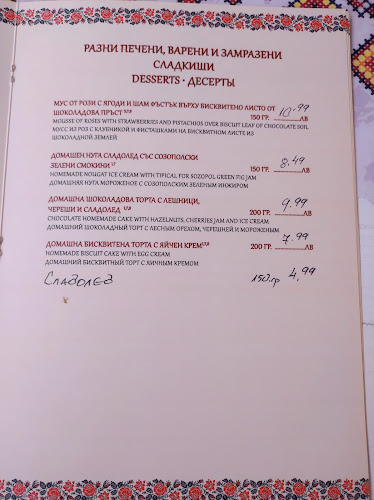 РАЗНИ ПЕЧЕНИ, ВАРЕНИ И ЗАМРАЗЕНИ
СЛАДКИШИ
DESSERTS · ДЕСЕРТЫ
МУС ОТ РОЗИ С ЯГОДИ И ШАМ ФЪСТЪК ВЪРХУ БИСКВИТЕНО ЛИСТО ОТ
ШОКОЛАДОВА ПРЪСТ 150 ГР. 10.99 ЛВ
MOUSSE OF ROSES WITH STRAWBERRIES AND PISTACHIOS OVER BISCUIT LEAF OF CHOCOLATE SOIL
МУСС ИЗ РОЗ С КЛУБНИКОЙ И ФИСТАШКАМИ НА БИСКВИТНОМ ЛИСТЕ ИЗ
ШОКОЛАДНОЙ ЗЕМЛЕЙ
ДОМАШЕН НУГА СЛАДОЛЕД СЪС СОЗОПОЛСКИ
ЗЕЛЕНИ СМОКИНИ 150 ГР. 8.49 ЛВ
HOMEMADE NOUGAT ICE CREAM WITH TIPICAL FOR SOZOPOL GREEN FIG JAM
ДОМАШНЯЯ НУГА МОРОЖЕНОЕ С СОЗОПОЛСКИМ ЗЕЛЕНЫМ ИНЖИРОМ
ДОМАШНА ШОКОЛАДОВА ТОРТА С ЛЕШНИЦИ,
ЧЕРЕШИ И СЛАДОЛЕД 200 ГР. 9.99 ЛВ
CHOCOLATE HOMEMADE CAKE WITH HAZELNUTS, CHERRIES JAM AND ICE CREAM
ДОМАШНИЙ ШОКОЛАДНЫЙ ТОРТ С ЛЕСНЫМ ОРЕХОМ, ЧЕРЕШНЕЙ И МОРОЖЕНЫМ
ДОМАШНА БИСКВИТЕНА ТОРТА С ЯЙЧЕН КРЕМ 200 ГР. 7.99 ЛВ
HOMEMADE BISCUIT CAKE WITH EGG CREAM
ДОМАШНИЙ БИСКВИТНЫЙ ТОРТ С ЯИЧНЫМ КРЕМОМ
Сладолед 150гр 4,99